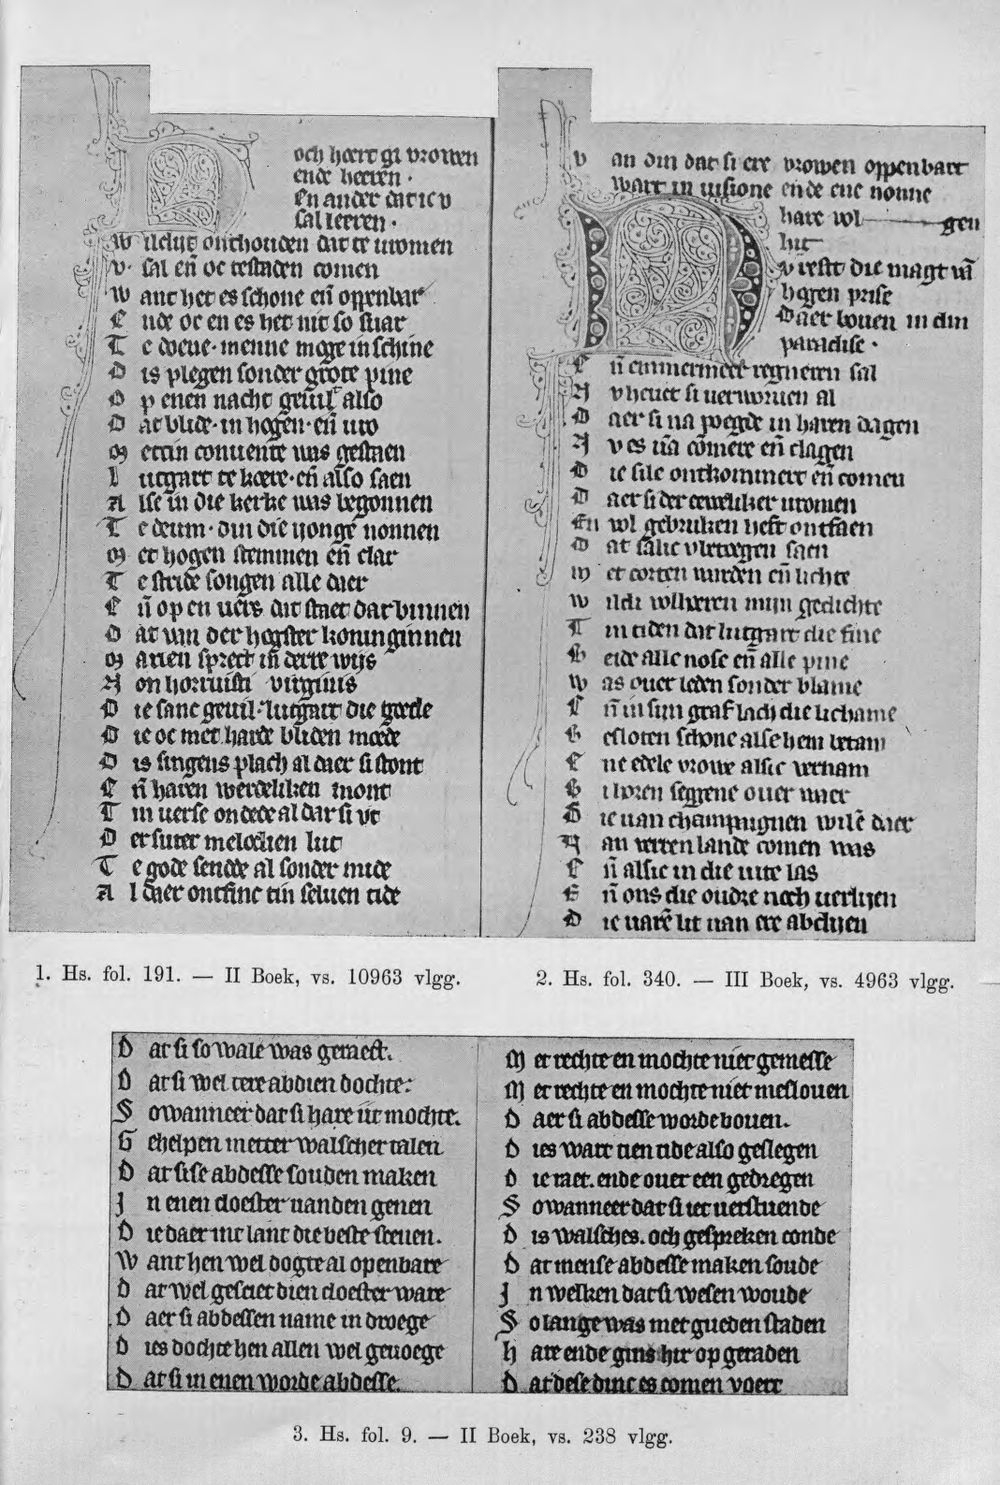 Noch hoert gi vrowen
ende heeren ·
En ander dat ic v
sal leeren ·
W ildijt onthouden dat te vromen
v· sal eñ oc te staden comen
W ant het es schone eñ oppenbar
E nde oc en es het nit so suar
T e doene· menne moge in schine
D is plegen sonder grote pine
O p enen nacht geuil also
D at blide· in hogen· eñ uro
M ettin conuente was gestaen
L utgart te koere· eñ also saen
A lse in die kerke was begonnen
T e deum· om die yonge nonnen
M et hogen stemmen eñ clar
T e stride songen alle daer
E ñ op en uers dit staet dar binnen
D at van der hogster koninginnen
M arien sprect in derre wijs
N on horruisti virginis
D ie sanc geuil· lutgart die goede
D ie oc met harde bliden moede
D is singens plach al daer si stont
E ñ haren werdeliken mont
T in uerse ondede al dar si vt
D er suter melodien lut
T e gode sendde al sonder nide
A l daer ontfinc tin seluen tide
V an din dat si ere vrowen oppenbarr
Warr in uisione ende ene nonne
hare wl gen
lut
V irst die magt uã
hogen prise
Daer bouen in din
paradise ·
E ñ emmermeer regneren sal
N v heuet si uerworuen al
D aer si na poegde in haren dagen
N v es uã comere eñ clagen
D ie sile ontkommert eñ comen
D aer si der eeweliker vromen
En wl gebruken heft ontfaen
D at salic vlewegen saen
M et corten worden eñ lichte
W ildi wlheren mijn gedichte
T in tiden dat lutgart die fine
B eide alle nose eñ alle pine
W as ouer leden sonder blame
E ñ in sijn graf lach die lichame
B esloten schone alse hem betam
E ne edele vrowe alsic vernam
B i horen seggene ouer waer
D ie uan champaignen wilē daer
V an verren lande comen was
E ñ alsic in die uite las
E ñ ons die oudre noch uerlijen
D ie uarē ut uan ere abdijen
1. Hs. fol. 191. — II Boek, vs. 10963 vlgg.
2. Hs. fol. 340. — III Boek, vs. 4963 vlgg.
D at si so wale was geraect.
D at si wel tere abdien dochte:
S owanneer dat si hare iit mochte.
G ehelpen metter walscher talen
D at si se abdesse souden maken
J n enen cloester uanden genen
D ie daer int lant die beste scenen.
W ant hen wel dogte al openbare
D at wel gesciet dien cloester ware
D aer si abdessen name in droege
D ies dochte hen allen wel genoege
D at si in enen worde abdesse.
M et rechte en mochte niet gemesse
M et rechte en mochte niet meslouen
D aer si abdesse worde bouen.
D ies ward tien tide also geslegen
D ie raet. ende ouer een gedregen
S owanneer dat si iet uerstuende
D is walsches. och gespreken conde
D at mense abdesse maken soude
J n welken dat si wesen woude
S o lange was met gueden staden
H are ende gins hir op geraden
D at dese dinc es comen voert
3. Hs. fol. 9. — II Boek, vs. 238 vlgg.